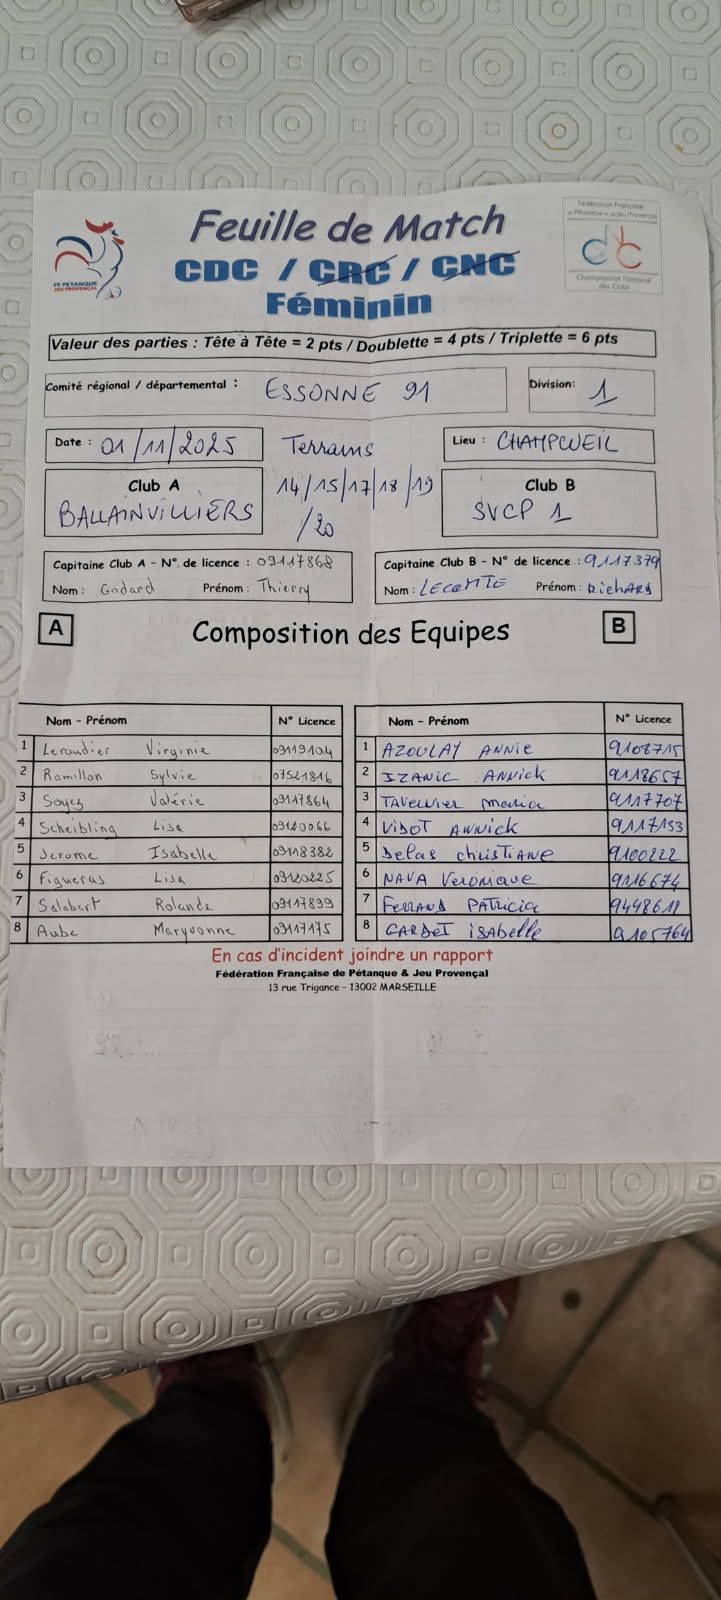 Feuille de Match
CDC / CRC / CNC
Féminin
FF PETANQUE
JEU PROVENÇAL
Fédération Française
de Pétanque et de Jeu Provençal
Championnat National
des Clubs
Valeur des parties : Tête à Tête = 2 pts / Doublette = 4 pts / Triplette = 6 pts
Comité régional / départemental : ESSONNE 91
Division: 1
Date : 01/11/2025
Terrains
Lieu : CHAMPCUEIL
Club A
BALLAINVILLIERS
14/15/17/18/19
/20
Club B
SVCP 1
Capitaine Club A - N°. de licence : 09117868
Nom : Godard Prénom : Thierry
Capitaine Club B - N° de licence : 9117379
Nom : LECOMTE Prénom : RicHARD
A
Composition des Equipes
B
Nom - Prénom N° Licence
1 Leroudier Virginie 09119104
2 Ramillon Sylvie 07521816
3 Soyez Valérie 09117864
4 Scheibling Lisa 09120066
5 Jerome Isabelle 09118382
6 Figueras Lisa 09120225
7 Salabert Rolande 09117899
8 Aube Maryvonne 09117175
Nom - Prénom N° Licence
1 AZOULAY ANNIE 9108715
2 IZANIC ANNick 9118657
3 TAVERNIER maria 9117707
4 VIDOT ANNICK 9117153
5 Delas christiANE 9100222
6 NAVA Veronique 9116674
7 FERRAND PATRICIA 9448611
8 GARDET iSAbelle 9105764
En cas d'incident joindre un rapport
Fédération Française de Pétanque & Jeu Provençal
13 rue Trigance - 13002 MARSEILLE